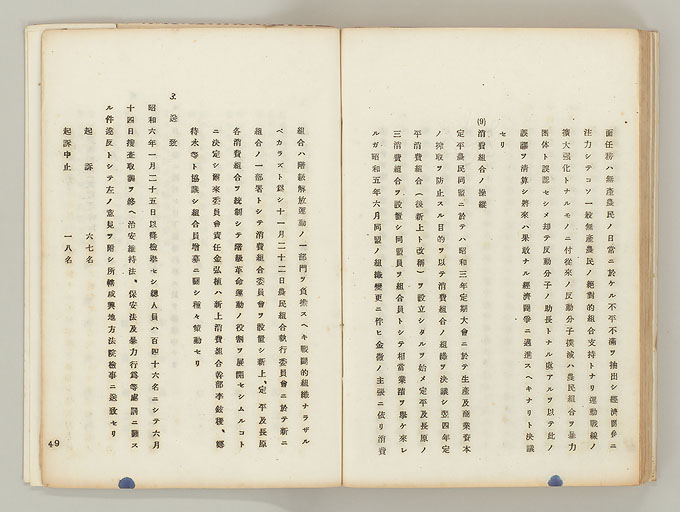 面任務ハ無産農民ノ日常ニ於ケル不平不滿ヲ抽出シ經濟鬪爭ニ
注力シテコソ一般無産農民ノ絕對的組合支持トナリ運動戰線ノ
擴大强化トナルモノニ付從來ノ反動分子撲滅ハ農民組合ヲ暴力
團体ト誤認セシメ却テ反動分子ノ助長トナル虞アルヲ以テ此ノ
誤謬ヲ淸算シ將來ハ果敢ナル經濟鬪爭ニ邁進スヘキナリト決議
セリ
(9) 消費組合ノ操縱
定平農民同盟ニ於テハ昭和三年定期大會ニ於テ生產及商業資本
ノ搾取ヲ防止スル目的ヲ以テ消費組合ノ組織ヲ決議シ翌四年定
平消費組合(後新上ト改稱)ヲ設立シタルヲ始メ定平及長原ノ
三消費組合ヲ設置シ同盟員ヲ組合員トシテ相當業績ヲ擧ケ來レ
ルガ昭和五年六月同盟ノ組織變更ニ伴ヒ金微ノ主張ニ依リ消費
組合ハ階級解放運動ノ一部門ヲ負擔スヘキ戰鬪的組織ナラザル
ベカラズト爲シ十一月二十二日農民組合執行委員會ニ於テ新ニ
組合ノ一部署トシテ消費組合委員會ヲ設置シ新上、定平及長原
各消費組合ヲ統制シテ階級革命運動ノ役割ヲ展開セシムルコト
ニ決定シ爾來委員會責任金弘植ハ新上消費組合幹部李 、鄭
待永等ト協議シ組合員增募ニ關シ種々策動セリ
送致
昭和六年一月二十五日以降檢擧セシ總人員ハ百四十六名ニシテ六月
十四日搜査取調ヲ終ヘ治安維持法、保安法及暴力行爲等處罰ニ關ス
ル件違反トシテ左ノ意見ヲ附シ所轄咸興地方法院檢事ニ送致セリ
起訴 六七名
起訴中止 一八名
49